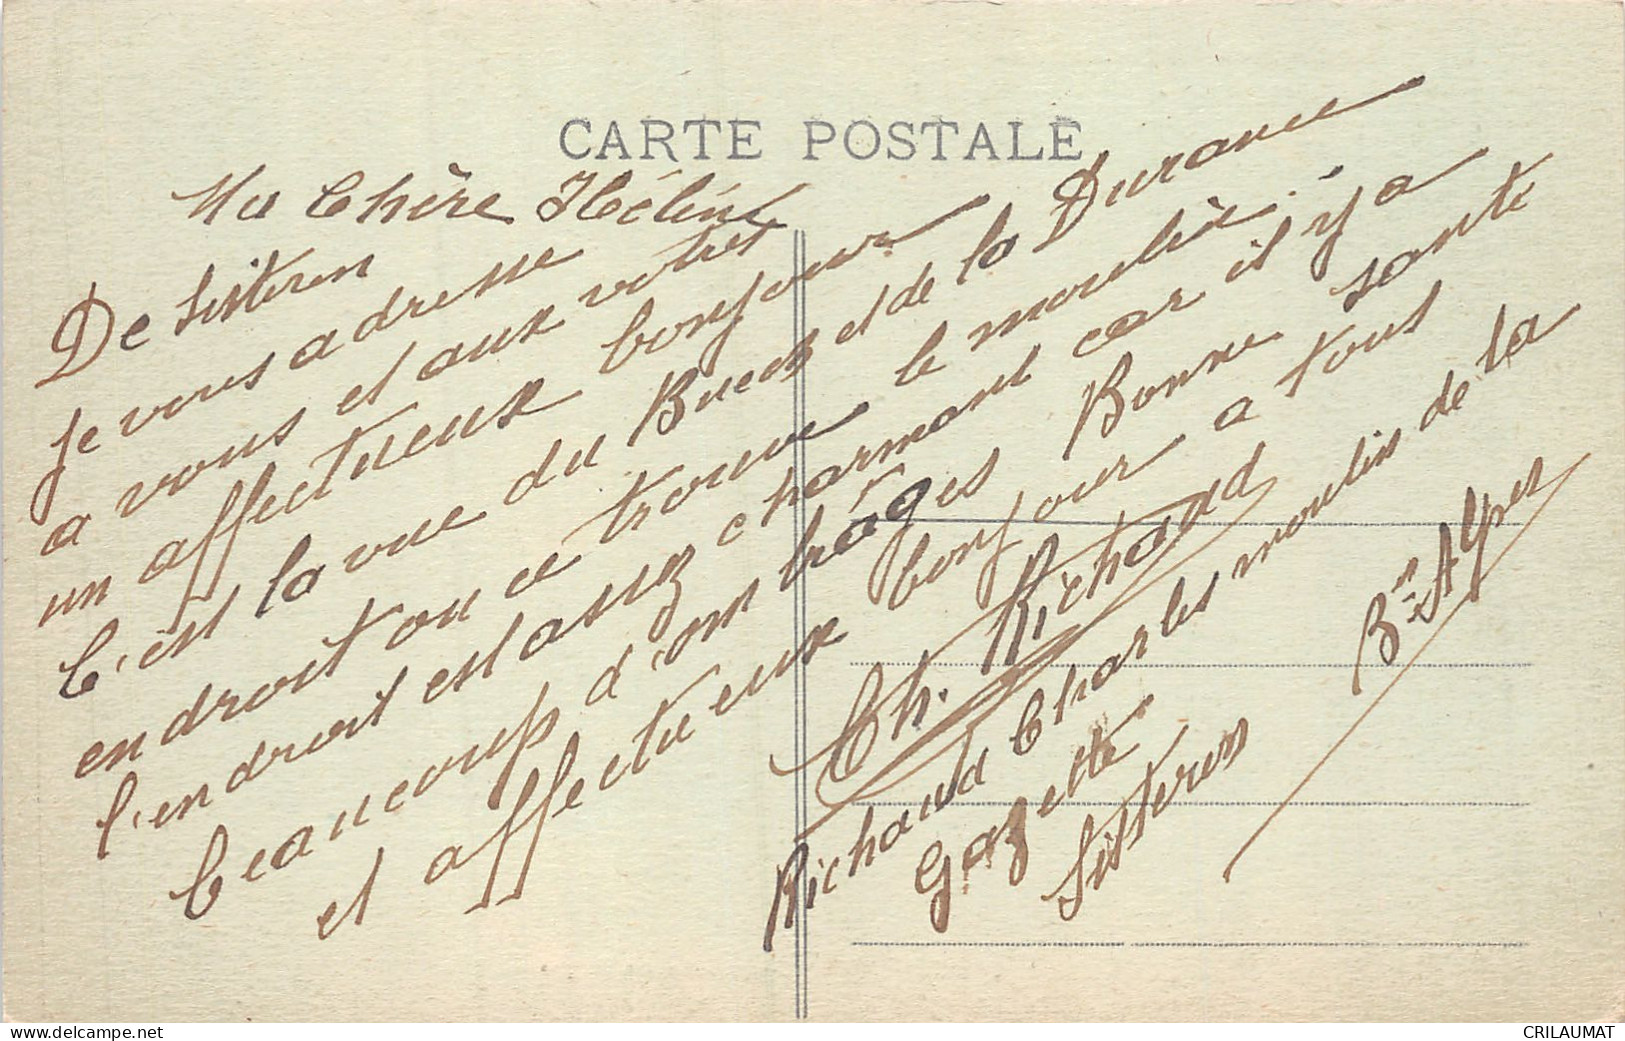 CARTE POSTALE
Ma Chère Hélène
De Sisteron
je vous adresse
a vous et aux votres
un affectueux bonjour
C'est la vue du Buech et de la Durance
endroit ou ce trouve le moulin.
l'endroit est assez charmant car il y a
beaucoup d'ombrages Bonne santé
et affectueux bonjour a tous
Ch. Richaud
Richaud Charles moulin de la
Gazette
Sisteron
Bses Alpes
www.delcampe.net
CRILAUMAT